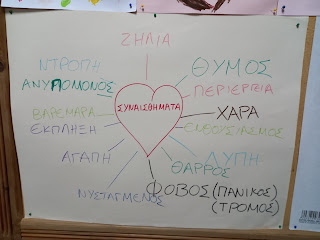 ΖΗΛΙΑ
ΝΤΡΟΠΗ
ΘΥΜΟΣ
ΑΝΥΠΟΜΟΝΟΣ
ΠΕΡΙΕΡΓΕΙΑ
ΣΥΝΑΙΣΘΗΜΑΤΑ
ΒΑΡΕΜΑΡΑ
ΧΑΡΑ
ΕΚΠΛΗΞΗ
ΕΝΘΟΥΣΙΑΣΜΟΣ
ΑΓΑΠΗ
ΛΥΠΗ
ΘΑΡΡΟΣ
ΝΥΣΤΑΓΜΕΝΟΣ
ΦΟΒΟΣ (ΠΑΝΙΚΟΣ)
(ΤΡΟΜΟΣ)